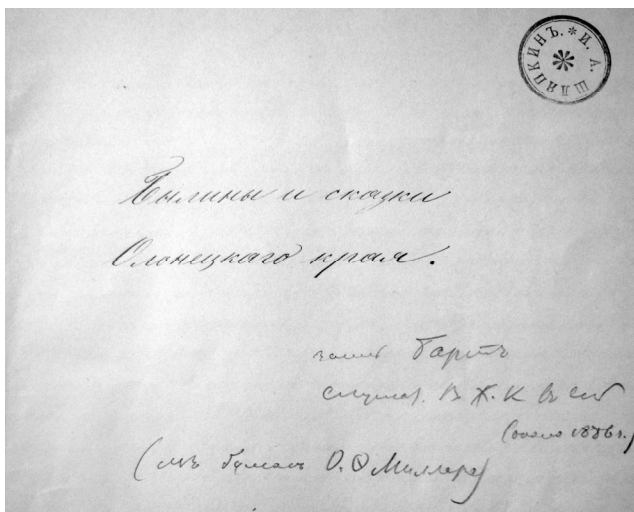 И. А. ШЛЯПКИНЪ.
Былины и сказки
Олонецкаго края.
Бартъ
слушат. В Ж. К въ Спб
(около 1886 г.)
(изъ бумагъ О. Ѳ Миллера)